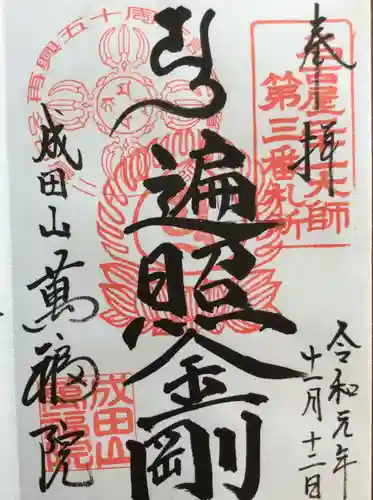 奉拝
名古屋廿一大師
第三番札所
遍照金剛
再興五十周
成田山萬福院
成田山
萬福院
令和元年
十一月十二日